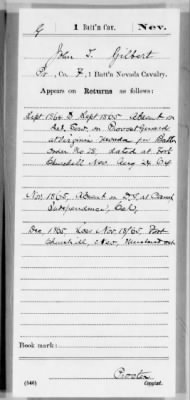 G | 1 Batt'n Cav. | Nev.
John T. Gilbert
Pr., Co. F, 1 Batt'n Nevada Cavalry.
Appears on Returns as follows:
Sept 1864 to Sept 1865. Absent on
Det. Serv. in Provost Guard
at Virginia Nevada per Batt
Order No 28, dated at Fort
Churchill Nev. Aug 24 64
Nov 1865, Absent on D.S. at Camp
Independence, Cal,
Dec, 1865 Nov 18/65 Fort
Churchill, Nev, Mustered out
Book mark:
(546)
Copyist.